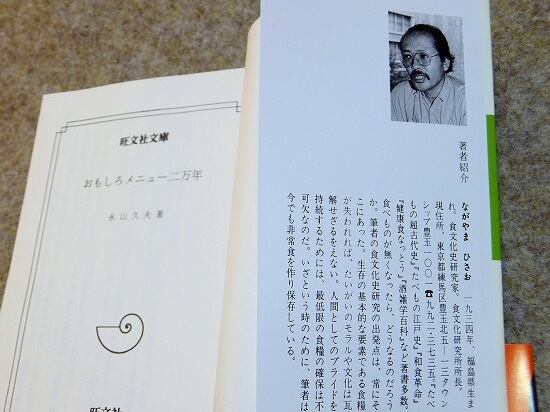 旺文社文庫
おもしろメニュー二万年
永山久夫著
旺文社
著者紹介
ながやま ひさお 一九三四年、福島県生ま
れ。食文化史研究家。食文化研究所所長。
現住所、東京都練馬区豊玉北五―一三タウン
シップ豊玉一〇〇一☎九九二・三七三五『たべ
もの超古代史』『たべもの江戸史』『和食革命』
『健康食なっとう』『酒雑学百科』など著書多数。
食べものが無くなったら、どうなるのだろう
か。筆者の食文化史研究の出発点は、常にそ
こにあった。生存の基本的な要素である食糧
が失われれば、たいがいのモラルや文化は瓦
解せざるをえない。人間としてのプライドを
持続するためには、最低限の食糧の確保は不
可欠なのだ。いざという時のために、筆者は
今でも非常食を作り保存している。